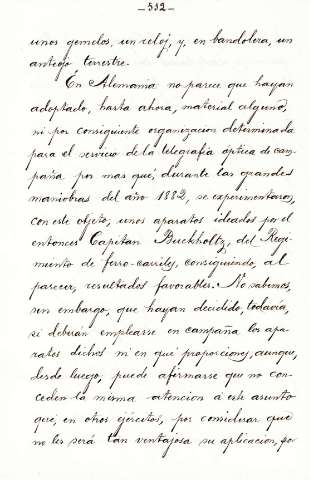 -532-
unos gemelos, un reloj, y, en bandolera, un
anteojo terrestre.
En Alemania no parece que hayan
adoptado, hasta ahora, material alguno,
ni por consiguiente organizacion determinada
para el servicio de la telegrafía optica de cam-
paña por mas que, durante las grandes
maniobras del año 1882, se experimentaron,
con este objeto, unos aparatos ideados por el
entonces Capitan Buckholtz, del Regi-
miento de ferro-carriles, consiguiendo, al
parecer, resultados favorables. No sabemos,
sin embargo, que hayan decidido, todavía,
si deberán emplearse en campaña los apa-
ratos dichos ni en qué proporciones, aunque,
desde luego, puede afirmarse que no con-
ceden la misma atencion á este asunto
que, en otros ejércitos, por considerar que
no les será tan ventajosa su aplicacion, por